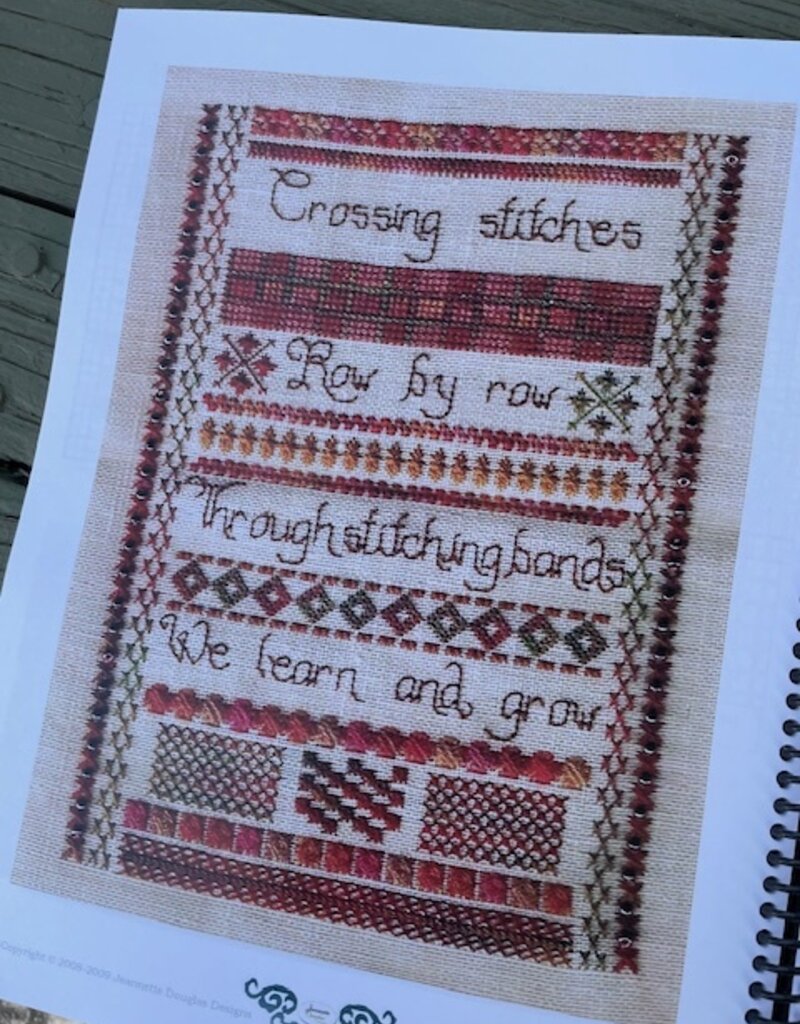 Crossing stitches
Row by row
Through stitching bands
We learn and grow
Copyright © 2008-2009 Jeannette Douglas Designs